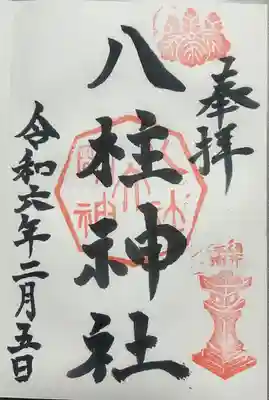 奉拝
八柱神社
令和六年二月五日